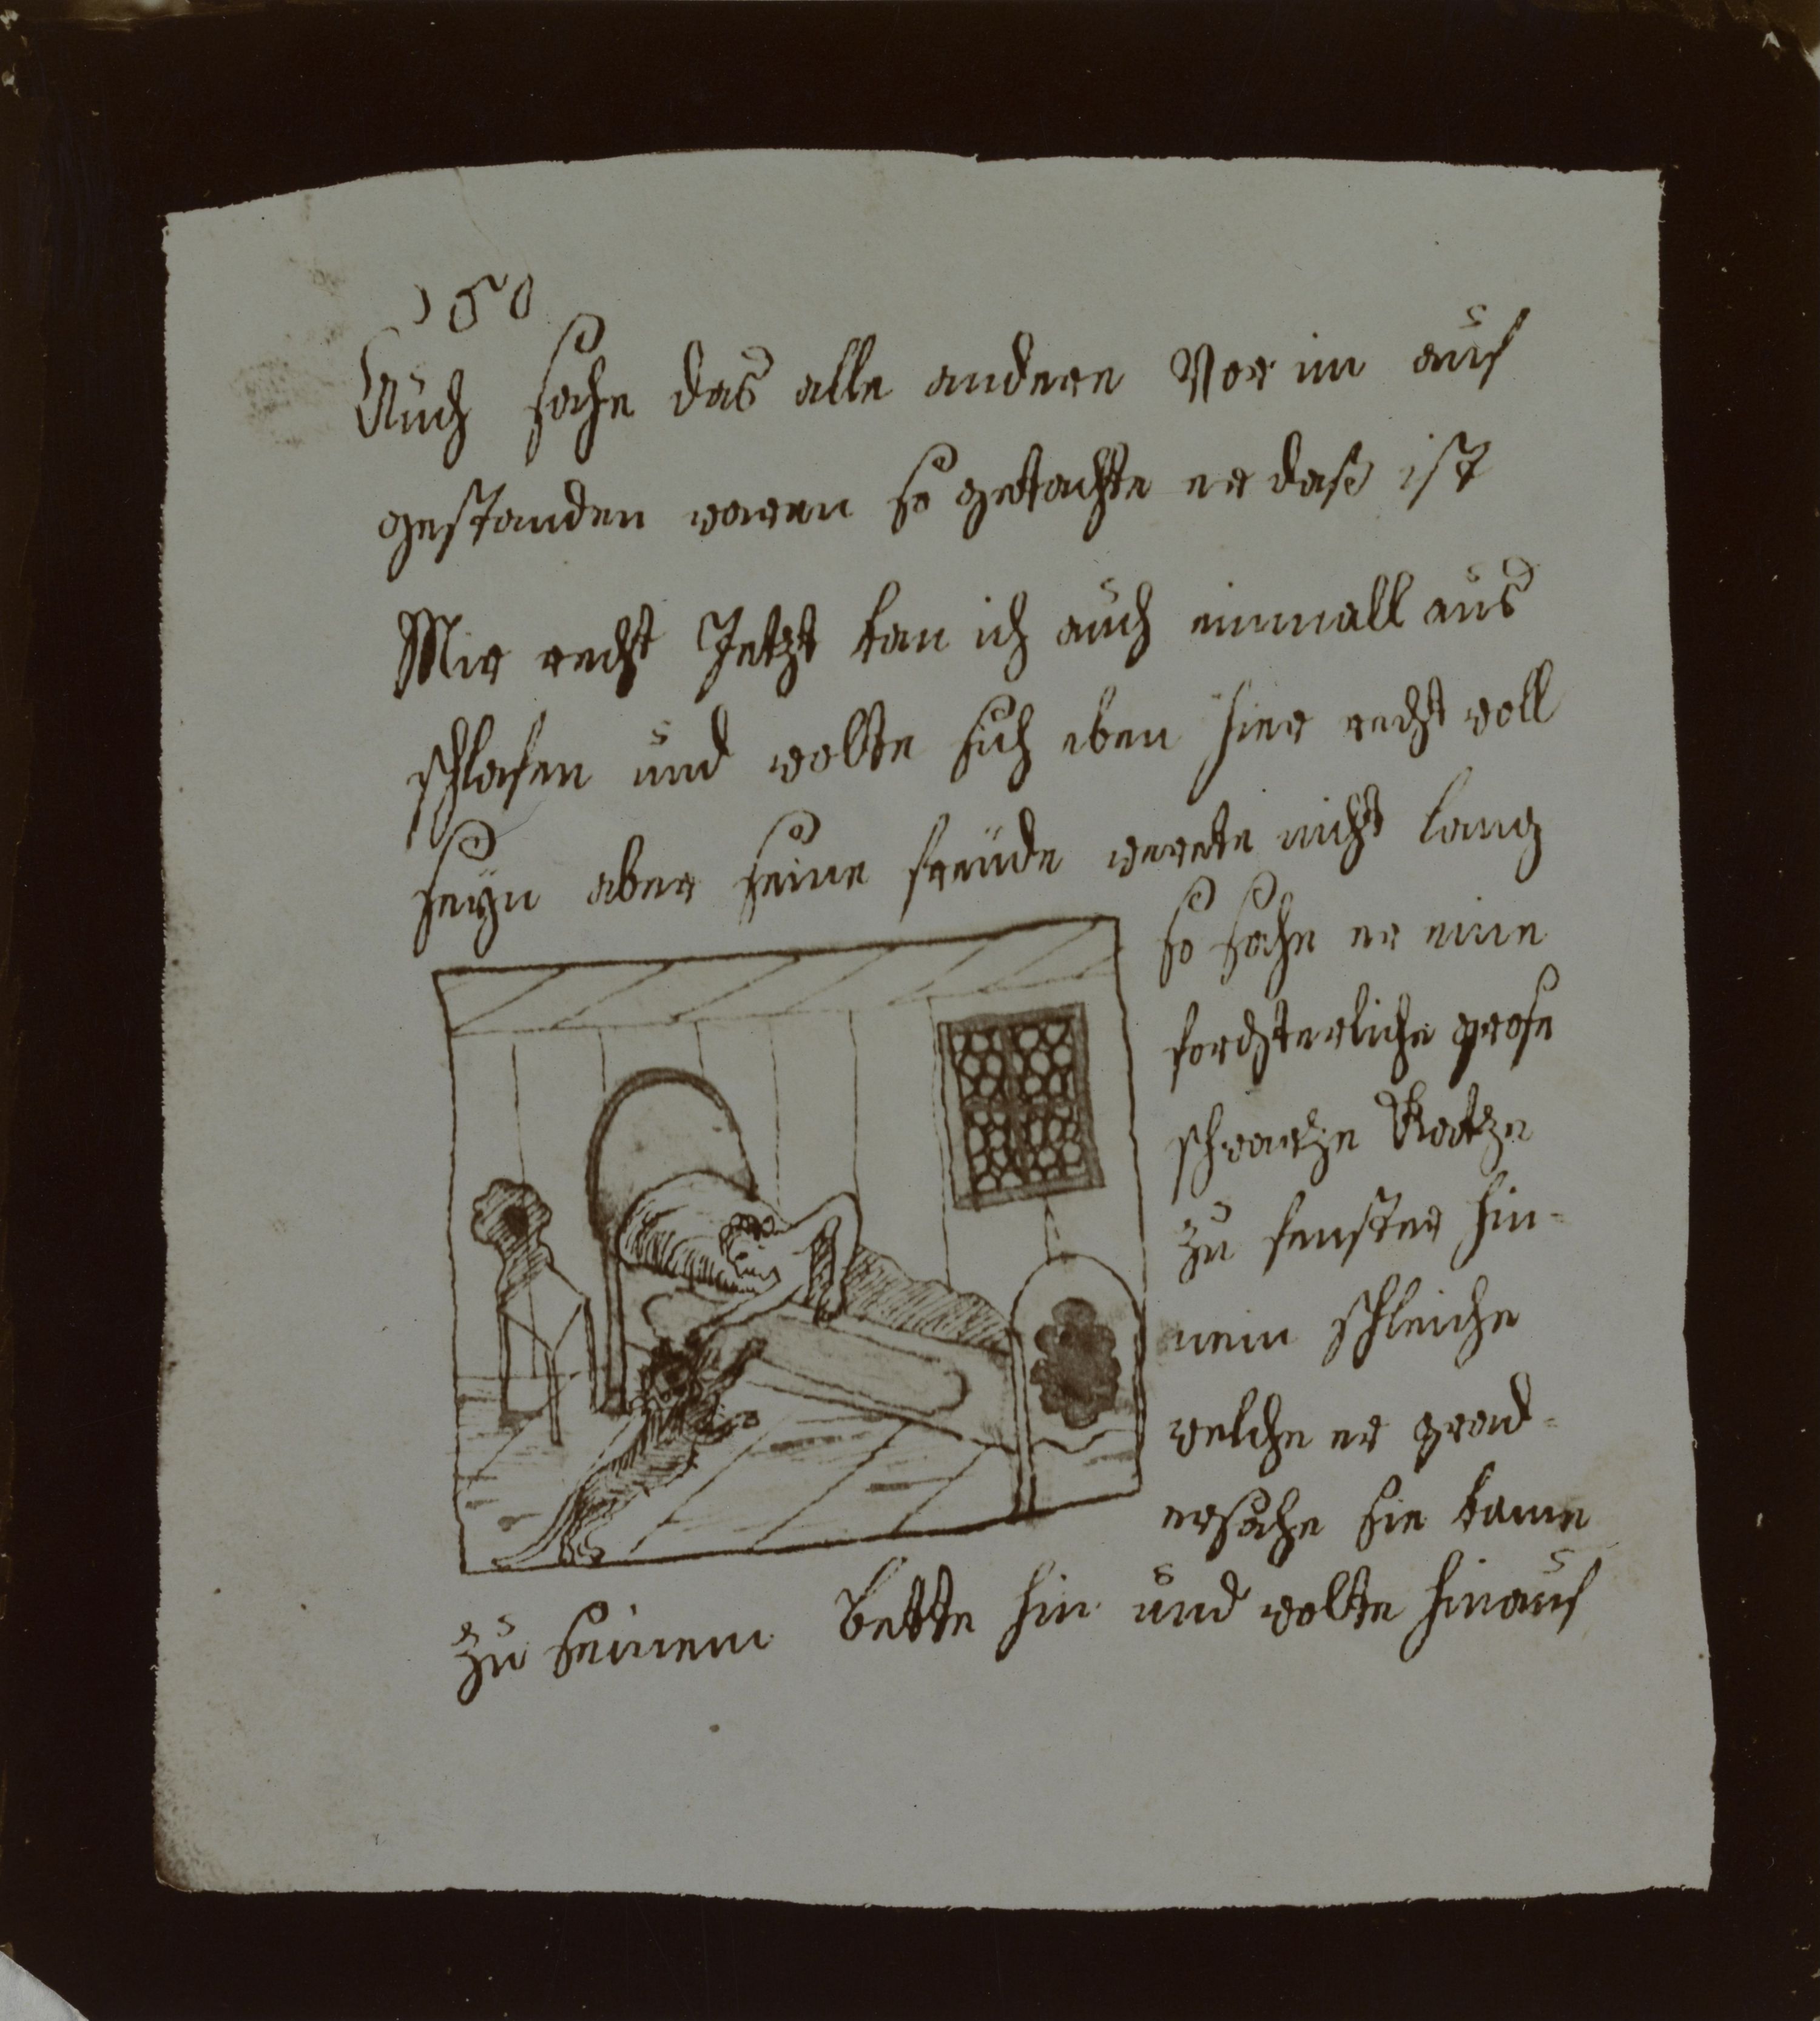 150
Auch sahe das alle andere Vor im auf
gestanden waren so gedachte er daß ist
Mir recht Jetzt kan ich auch einmall aus
schlafen und wolte sich eben hier recht woll
seyn aber seine freüde werete nicht lang
so sahe er eine
forchterliche grose
schwartze Katze
zu fenster hin-
nein schleiche
welche er grad-
ersahe sie kame
zu seinem bette hin und wolte hinauf